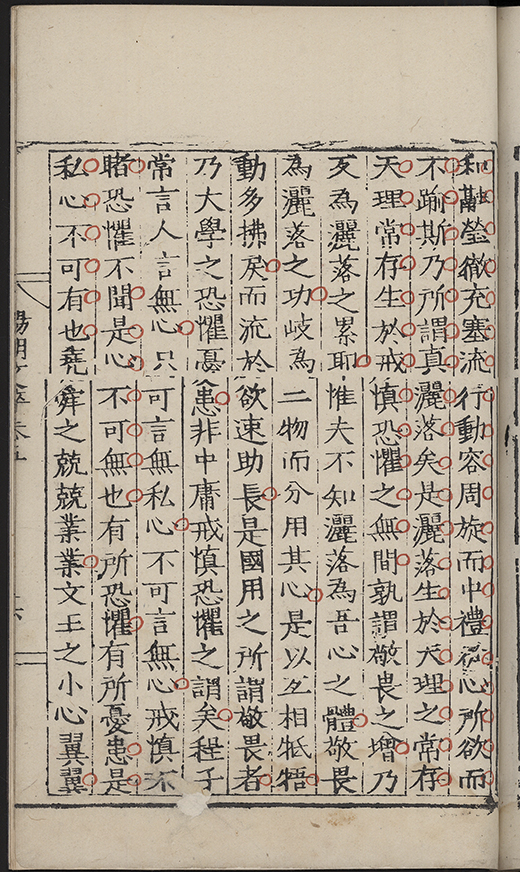 和融瑩徹充塞流行動容周旋而中禮從心所欲而
不踰斯乃所謂真灑落矣是灑落生於天理之常存
天理常存生於戒慎恐懼之無間孰謂敬畏之增乃
反為灑落之累耶惟夫不知灑落為吾心之體敬畏
為灑落之功岐為二物而分用其心是以互相牴牾
動多拂戾而流於欲速助長是國用之所謂敬畏者
乃大學之恐懼憂患非中庸戒慎恐懼之謂矣程子
常言人言無心只可言無私心不可言無心戒慎不
睹恐懼不聞是心不可無也有所恐懼有所憂患是
私心不可有也堯舜之兢兢業業文王之小心翼翼
陽明文粹卷五